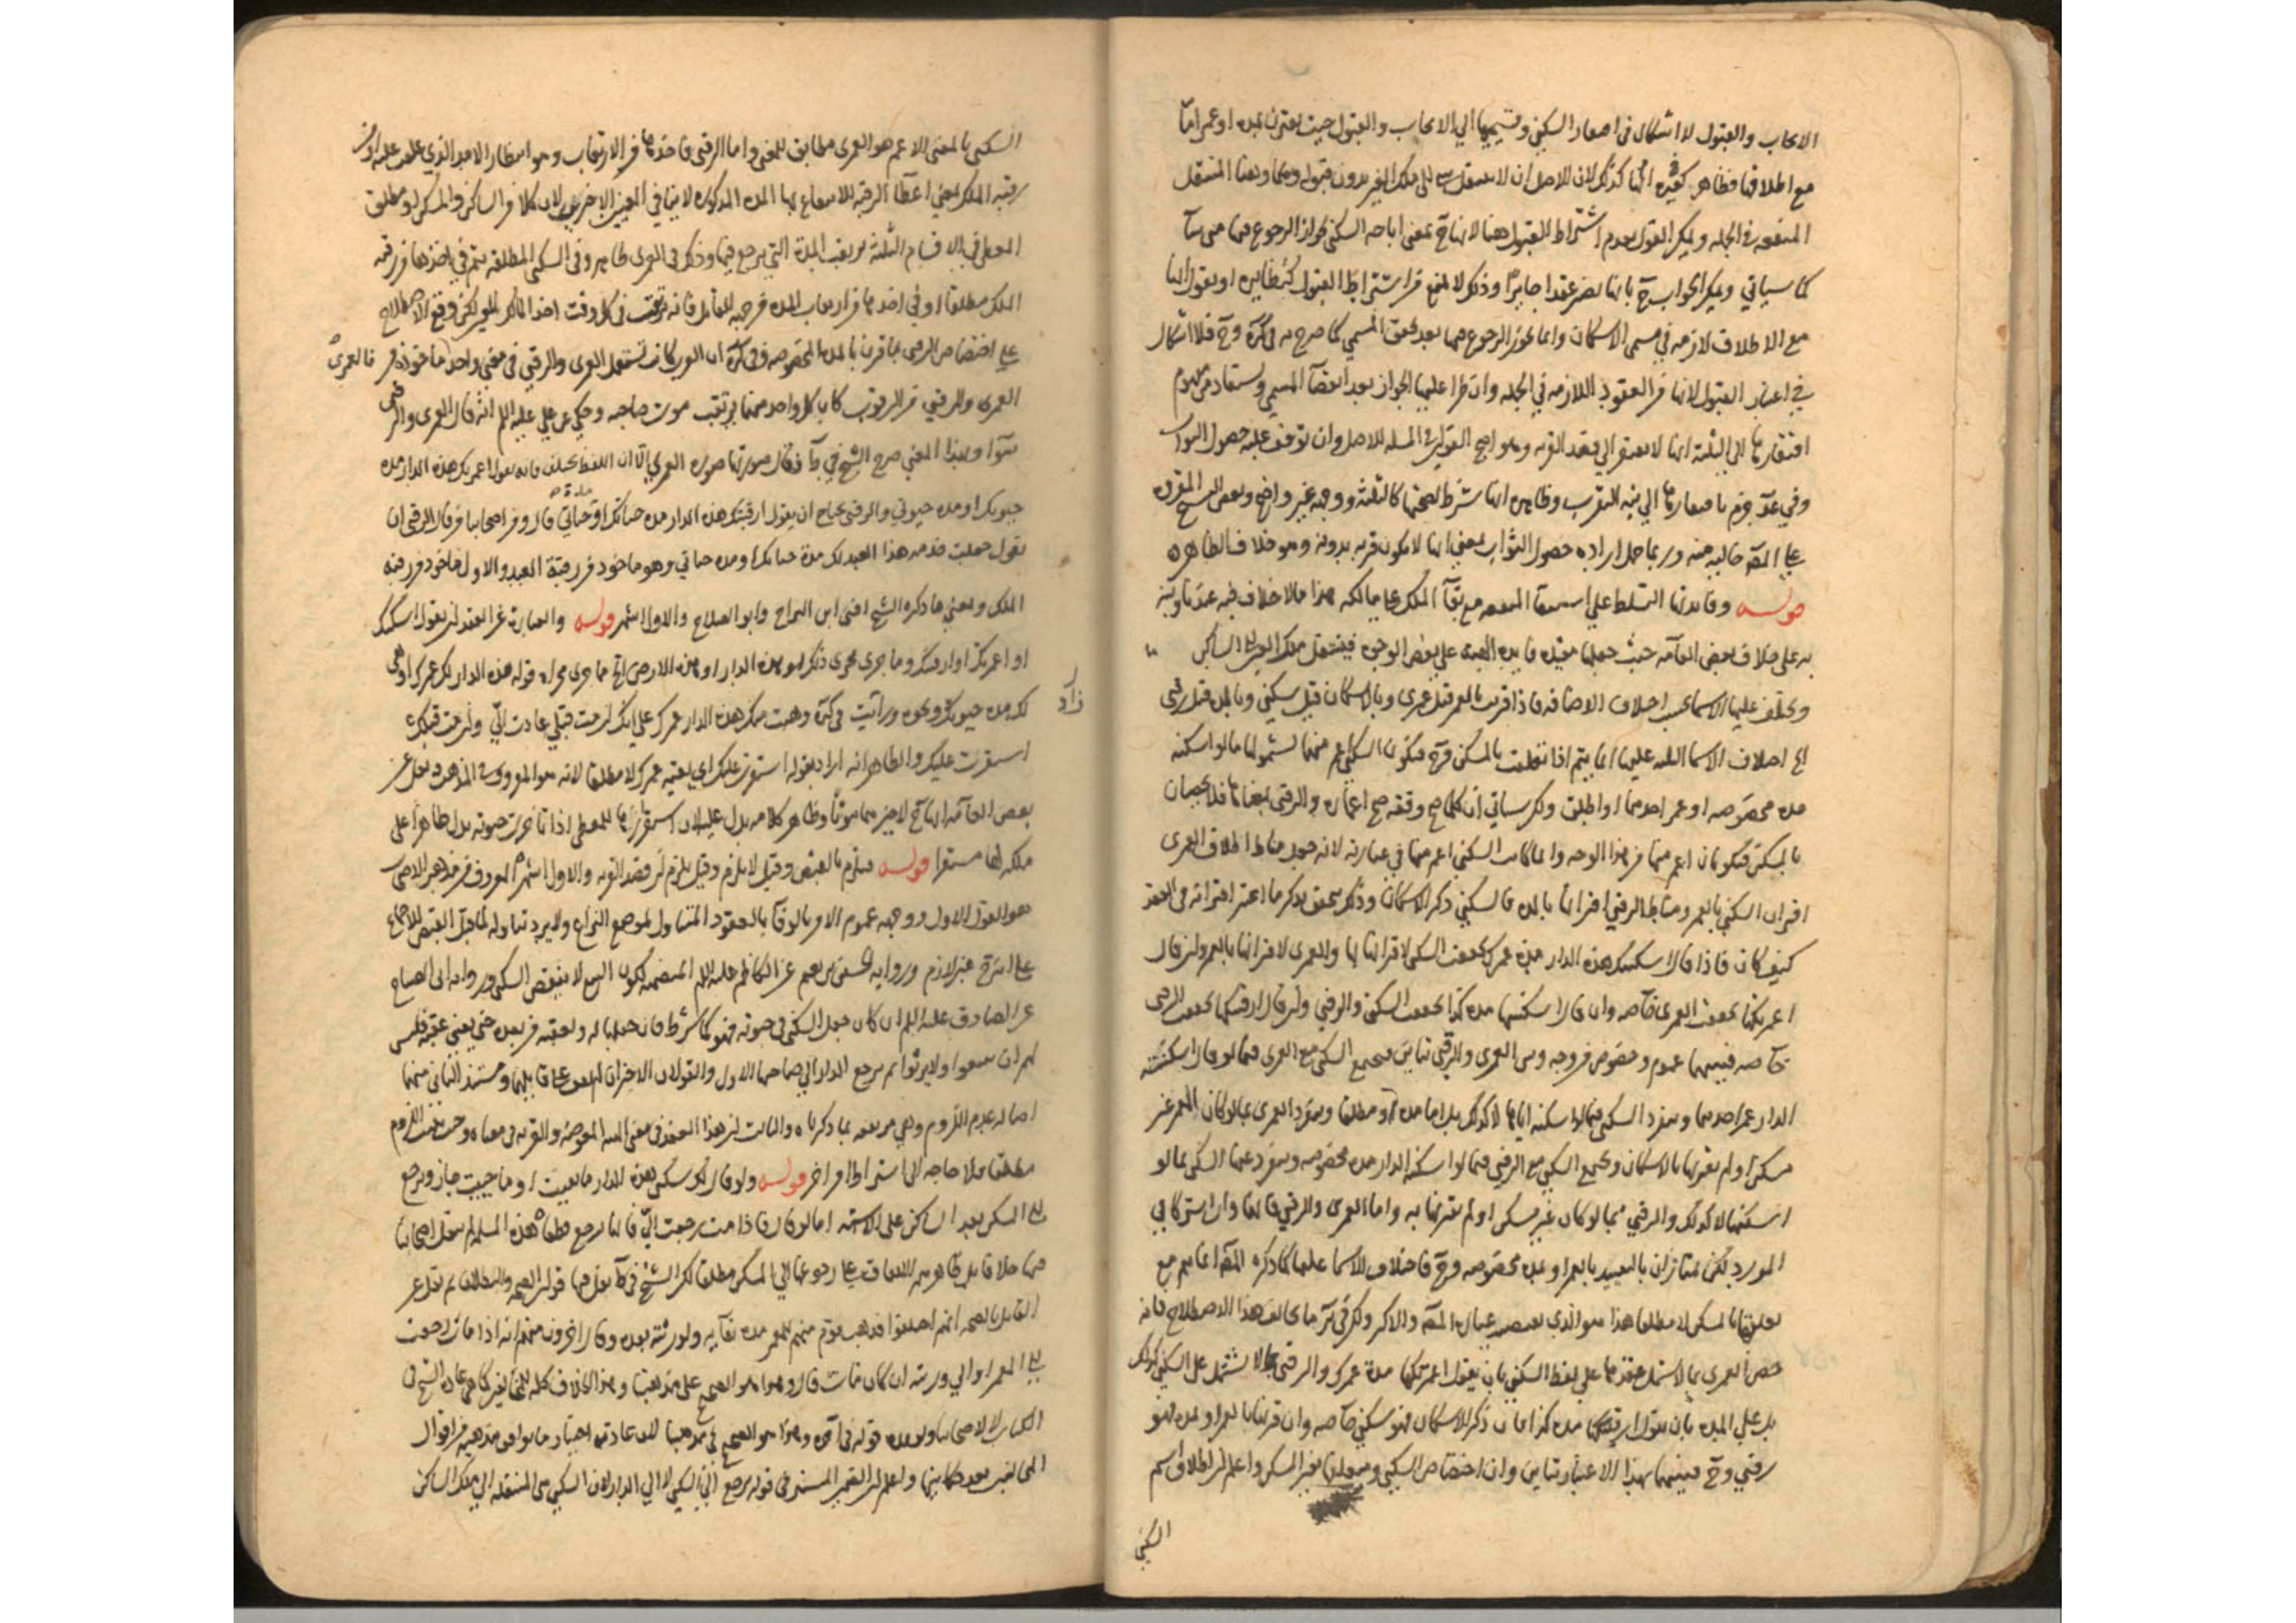 الايجاب والقبول لا اشكال في اعتبار السكنى وقسيميها الى الايجاب والقبول حيث يقترن بمدة او عمر اما
مع اطلاقها فظاهر كثيرة انها كذلك لان الاصل ان لا ينتقل شي الى ملك الغير بدون قبوله وهنا المنتقل
المنفعة في الجملة ويمكن القول بعدم اشتراط القبول هنا لانها ح بمعنى اباحة السكنى لجواز الرجوع فيها متى شاء
كما سياتي ويمكن الجواب ح بانها تصير عقدا جايزا وذلك لا يمنع من اشتراط القبول كنظايره او يقول انها
مع الاطلاق لازمة في مسمى الاسكان وانما يجوز الرجوع فيها بعد تحقق المسمى كما صرح به في كره وح فلا اشكال
في اعتبار القبول لانها من العقود اللازمة في الجملة وان طرا عليها الجواز بعد انقضاء المسمى ويستفاد من عدم
افتقارها الى الثلثة انها لا يفتقر الى قصد القربة وهو اصح القولين في المسئلة للاصل وان توقف عليه حصول الثواب
وفي عد جزم بافتقارها الى نية التقرب وظاهره انها شرط لصحتها كالثلثة ووجهه غير واضح وبعض النسخ المقروة
على المصنف خالية منه وربما حمل ارادة حصول الثواب بمعنى انها لا يكون قربة بدونه وهو خلاف الظاهر
قوله وفايدتها التسلط على استيفاء المنفعة مع بقاء الملك على مالكه هذا مما لا خلاف فيه عندنا ونبه
به على خلاف بعض العامة حيث جعلها مفيدة فايدة الهبة على بعض الوجوه فينتقل ملك العين الى الساكن
ويختلف عليها الاسماء بحسب اختلاف الاضافة فاذا قرنت بالعمر قيل عمرى وبالاسكان قيل سكنى وبالمدة قيل رقبى
الخ اختلاف الاسماء الثلثة عليها انما يتم اذا تعلقت بالمسكن وح فتكون السكنى اعم منهما لشمولها ما لو اسكنه
مدة مخصوصة او عمر احدهما او اطلق ولكن سياتي ان كلما صح وقفه صح اعماره والرقبى بمعناها فلا يختصان
بالمسكن فيكونان اعم منها من هذا الوجه وانما كانت السكنى اعم منهما في عبارته لانه جعل مناط اطلاق العمرى
اقتران السكنى بالعمر ومناط الرقبى اقترانها بالمدة فالسكنى ذكر الاسكان وذلك يتحقق بذكر ما اعتبر اقترانه في العقد
كيف كان فاذا قال اسكنتك هذه الدار مدة عمرك تحققت السكنى لاقترانها بها والعمرى لاقترانها بالعمر ولو قال
اعمرتكها تحققت العمرى خاصة وان قال اسكنتها مدة كذا تحققت السكنى والرقبى ولو قال ارقبتكها تحققت الرقبى
خاصة فبينهما عموم وخصوص من وجه وبين العمرى والرقبى تباين فيجتمع السكنى مع العمرى فيما لو قال اسكنتك
الدار عمر احدهما وينفرد السكنى فيما لو اسكنه اياها لا كذلك بل اما مدة او مطلقا وينفرد العمرى بما لو كان المعمر غير
مسكن او لم يقرنها بالاسكان ويجتمع السكنى مع الرقبى فيما لو اسكنه الدار مدة مخصوصة وينفرد عنها السكنى بما لو
اسكنها لا كذلك والرقبى بما لو كان غير مسكن او لم يقرنها به واما العمرى والرقبى فانهما وان اشتركا في
المورد لكن يمتازان بالتقييد بالعمر او بمدة مخصوصة وح فاختلاف الاسماء عليها كما ذكره المصنف انما يتم مع
تعلقها بالمسكن لا مطلقا هذا هو الذي يقتضيه عبارة المصنف والاكثر ولكن في كره ما يخالف هذا الاصطلاح فانه
خص العمرى بما لا يشتمل عقدها على لفظ السكنى بان يقول اعمرتكها مدة عمرك والرقبى بما لا يشتمل على السكنى كذلك
بل على المدة بان يقول ارقبتكها مدة كذا فان ذكر الاسكان فهو سكنى خاصة وان قرنها بالعمر او بمدة فهو
رقبى وح فبينهما بهذا الاعتبار تباين وان اختصاص السكنى ويتعلق بغير المسكن واعلم ان اطلاق اسم
السكنى
السكنى بالمعنى الاعم هو العمرى مطابق للمعنى واما الرقبى فاخذها من الارتقاب وهو انتظار الامد الذي علقت عليه او من
رقبة الملك بمعنى اعطاء الرقبة للانتفاع بها المدة المذكورة لا ينافي المعنيين الاخرين لان كلا من الساكن والمسكن او مطلق
المعطي في الاقسام الثلثة يرتقب المدة التي يرجع فيها وذلك في العمرى ظاهر وفي السكنى المطلقة يتم في اخذها من رقبة
الملك مطلقا او في اخذها من ارتقاب المدة من جهة القابل فانه يرتقب في كل وقت اخذ المالك للعين لكن وقع الاصطلاح
على اختصاص الرقبى بما قرن بالمدة المخصوصة وفي كره ان العرب كانت تستعمل العمرى والرقبى في معنى واحد ماخوذ من فالعمرى
العمر والرقبى من الرقوب كان كل واحد منهما يرتقب موت صاحبه وحكى عن علي عليه السلم انه قال العمرى والرقبى
سواء وبهذا المعنى صرح الشيخ في ط فقال صورتها صورة العمرى الا ان اللفظ يختلف فانه يقول اعمرتك هذه الدار مدة
حيوتك او مدة حيوتي والرقبى يحتاج ان يقول ارقبتك هذه الدار مدة حياتك او مدة حياتي قال ومن اصحابنا من قال الرقبى ان
يقول جعلت خدمة هذا العبد لك مدة حياتك او مدة حياتي وهو ماخوذ من رقبة العبد والاول ماخوذ من رقبة
الملك وبمعنى ما ذكره الشيخ افتى ابن البراج وابو الصلاح والاول اشهر قوله والعبارة عن العقد ان يقول اسكنتك
او اعمرتك او ارقبتك وما جرى مجرى ذلك هذه الدار او هذه الارض الخ مما جرى مجراه قوله هذه الدار لك عمرك او هي
لك مدة حيوتك ونحوه ورايت في كره وهبت منك هذه الدار عمرك على انك ان مت قبلي عادت الي وان مت قبلك
زاد
استقرت عليك والظاهر انه اراد بقوله استقرت عليك اي بقية عمرك لا مطلقا لانه هو المعروف في المذهب ونقل عن
بعض العامة انها ح لا يخرجها موتا وظاهر كلامه يدل على ان استقرارها للمعطى اذا تاخرت حيوته يدل ظاهرا على
ملكه لها مستقرا قوله ويلزم بالقبض وقيل لا يلزم وقيل يلزم ان قصد القربة والاول اشهر المعروف من مذهب الاصحاب
هو القول الاول ووجهه عموم الامر بالوفاء بالعقود المتناول لموضع النزاع ولا يرد تناوله لما قبل القبض للاجماع
على انه ح غير لازم ورواية الحسين بن نعيم عن الكاظم عليه السلم المتضمنة لكون البيع لا ينقض السكنى ورواية ابي الصباح
عن الصادق عليه السلم ان كان جعل السكنى في حيوته فهو كما شرط وان جعلها له ولعقبه من بعده حتى يفنى عقبه فليس
لهم ان يبيعوا ولا يورثوا ثم يرجع الدار الى صاحبها الاول والقولان الاخران لم نقف على قايلهما ومستند الثاني منهما
اصالة عدم اللزوم وهي مرتفعة بما ذكرناه والثالث ان هذا العقد في معنى الهبة المعوضة والقربة في معناه وحيث يثبت اللزوم
مطلقا فلا حاجة الى اشتراط امر اخر قوله ولو قال لك سكنى هذه الدار ما بقيت او ما حييت جاز ويرجع
الى المسكن بعد الساكن على الاشبه اما لو قال فاذا مت رجعت الي فانها ترجع قطعا هذه المسئلة لم ينقل اصحابنا
فيها خلافا بل ظاهرهم الاتفاق على رجوعها الى المسكن مطلقا لكن الشيخ في ط نقل فيها قولين الصحة والبطلان ثم نقل عن
القايل بالصحة انهم اختلفوا فذهب قوم منهم للمعمر مدة بقائه ولورثته بعده وقال اخرون منهم انه اذا مات رجعت
الى المعمر او الى ورثته ان كان مات قال وهذا هو الصحيح على مذهبنا وهذا الخلاف كله للمخالفين كما هي عادة الشيخ في
الكتاب لا لاصحابنا ويؤيده قوله في اخره وهذا هو الصحيح في مذهبنا لان عادته اختيار ما يوافق مذهبه من اقوال
المخالفين بعد حكايتها واعلم ان الضمير المستتر في قوله يرجع الى السكنى لا الى الدار لان السكنى هي المنتقلة الى ملك الساكن